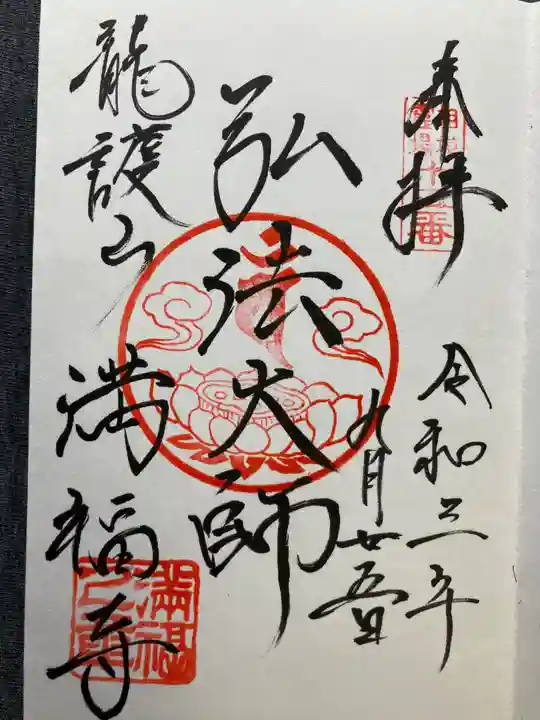 奉拝
令和三年
九月廿五日
弘法大師
龍護山
満福寺